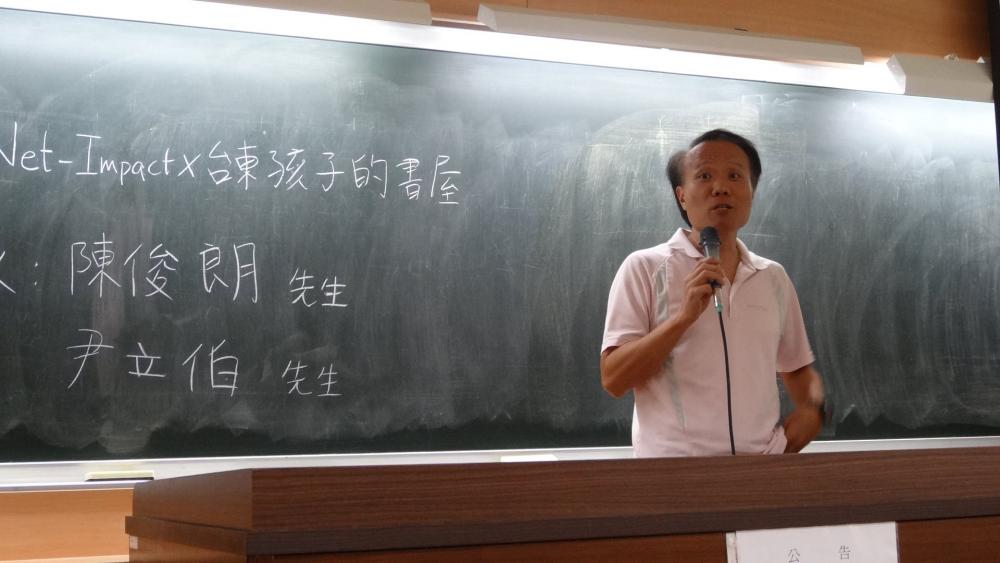 Net-Impact x 台東孩子的書屋
: 陳俊朗 先生
尹立伯 先生
公告